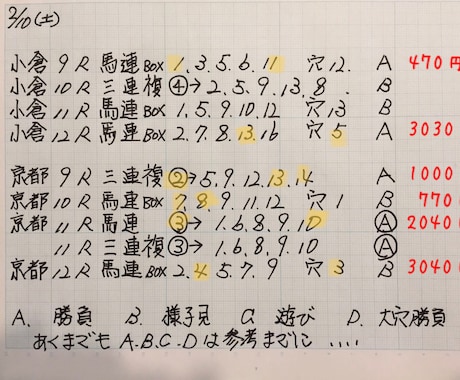 2/10(土)
小倉 9R 馬連BOX 1.3.5.6.11 穴12. A 470円
小倉 10R 三連複 ④→2.5.9.13.8 B
小倉 11R 馬連BOX 1.5.9.10.12 穴13 B
小倉 12R 馬連BOX 2.7.8.13.16 穴5 A 3030
京都 9R 三連複 ②→5.9.12.13.14 A 1000
京都 10R 馬連BOX 7.8.9.11.12 穴1 B 770
京都 11R 馬連 ③→ 1.6.8.9.10 Ⓐ 2040
11R 三連複 ③→ 1.6.8.9.10 Ⓐ
京都 12R 馬連BOX 2.4.5.7.9 穴3 B 3040
A. 勝負 B. 様子見 C. 遊び D. 大穴勝負
あくまでも A.B.C.Dは参考までに ....